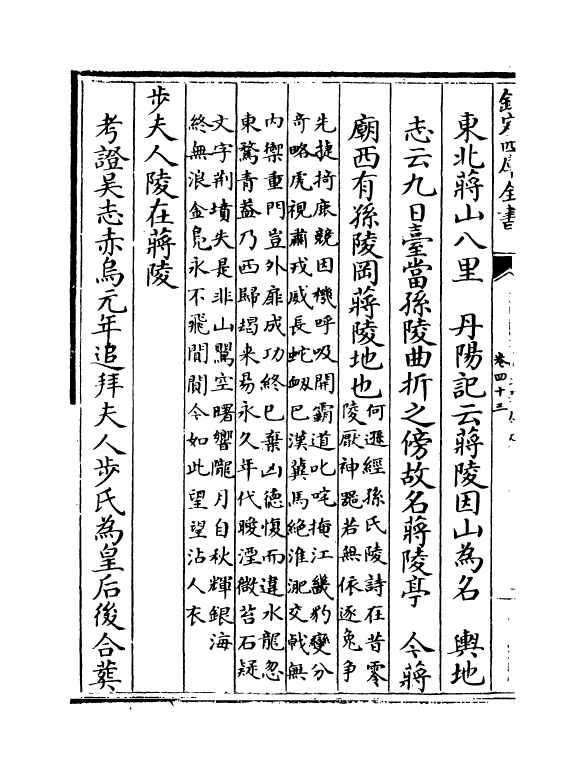 欽定四庫全書
卷四十三
東北蔣山八里　丹陽記云蔣陵因山為名　輿地
志云九日臺當孫陵曲折之傍故名蔣陵亭　今蔣
廟西有孫陵岡蔣陵地也
何遜經孫氏陵詩在昔零
陵厭神器若無依逐兔争
先捷掎鹿競因機呼吸開霸道叱咤掩江畿豹變分
奇略虎視肅戎威長蛇衂巴漢冀馬絶淮淝交戟無
内禦重門豈外扉成功終已棄凶德愎而違水龍忽
東騖青葢乃西歸朅来易永久年代曖湮微苔石疑
文字荆墳失是非山鸎空曙響隴月自秋輝銀海
終無浪金鳬永不飛閴閴今如此望望沾人衣
步夫人陵在蔣陵
考證吳志赤烏元年追拜夫人步氏為皇后後合葬